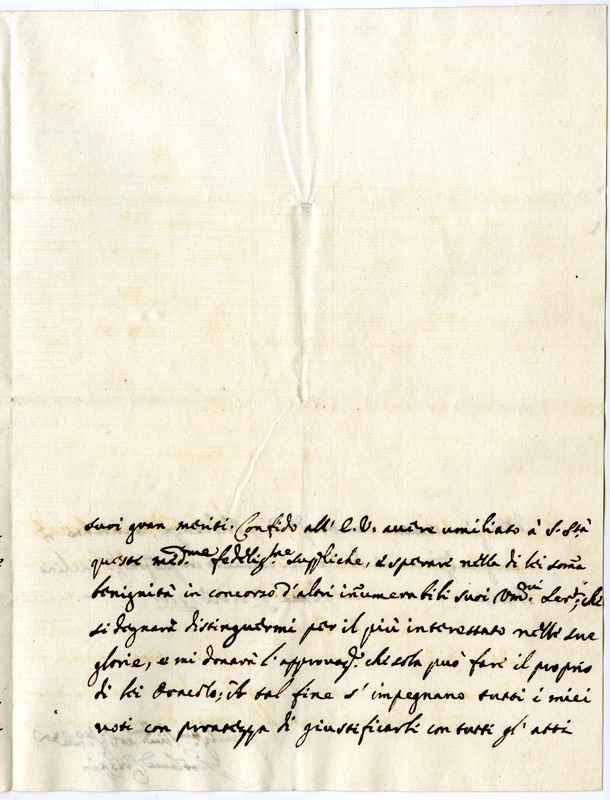 suoi gran meriti. Confido all' E.V. avere umiliato à S. Stà
queste med.me fedeliss.me suppliche, e sperare nella di lei soma
benignità in concorso d'altri inumerabili suoi Um.mi Ser.ri, che
si degnarà distinguermi per il più interessato nelle sue
glorie, e mi donarà l'approvaz.e che sola può fare il proprio
di lei ; tal fine s' impegnano tutti i miei
voti con prontezza di giustificarli con tutti gl' atti